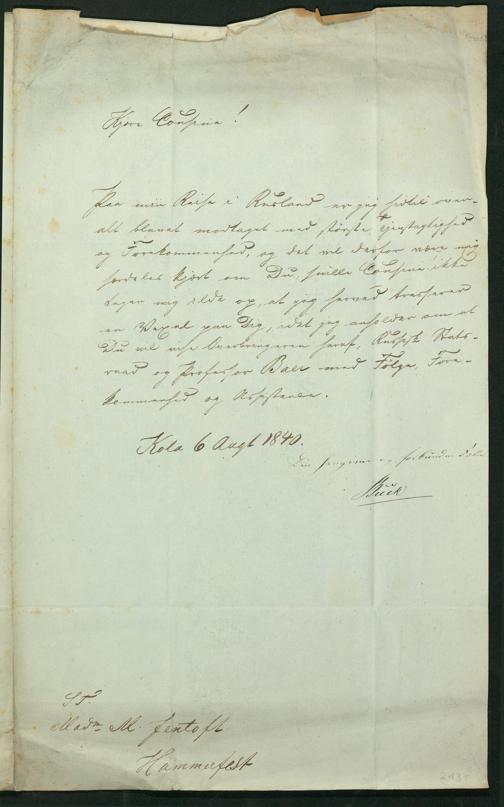 Kjære Cousine!
Paa min Reise i Rusland er jeg hidtil over-
alt blevet modtaget med største Gjestfrihed
og Forekommenhed, og det vil derfor være mig
særdeles kjært om Du, snille Cousine ikke
tager mig ilde op, at jeg herved trasserer
en Vexel paa Dig, idet jeg anholder om at
Du vil vise Overbringeren heraf, Russisk Stats-
raad og Professor Baer med Følge, Fore-
kommenhed og Assistance.
Kola 6 Augt 1840.
Din hengivne og forbundne
Buck
S. T.
Madm. M. Jentoft
Hammerfest